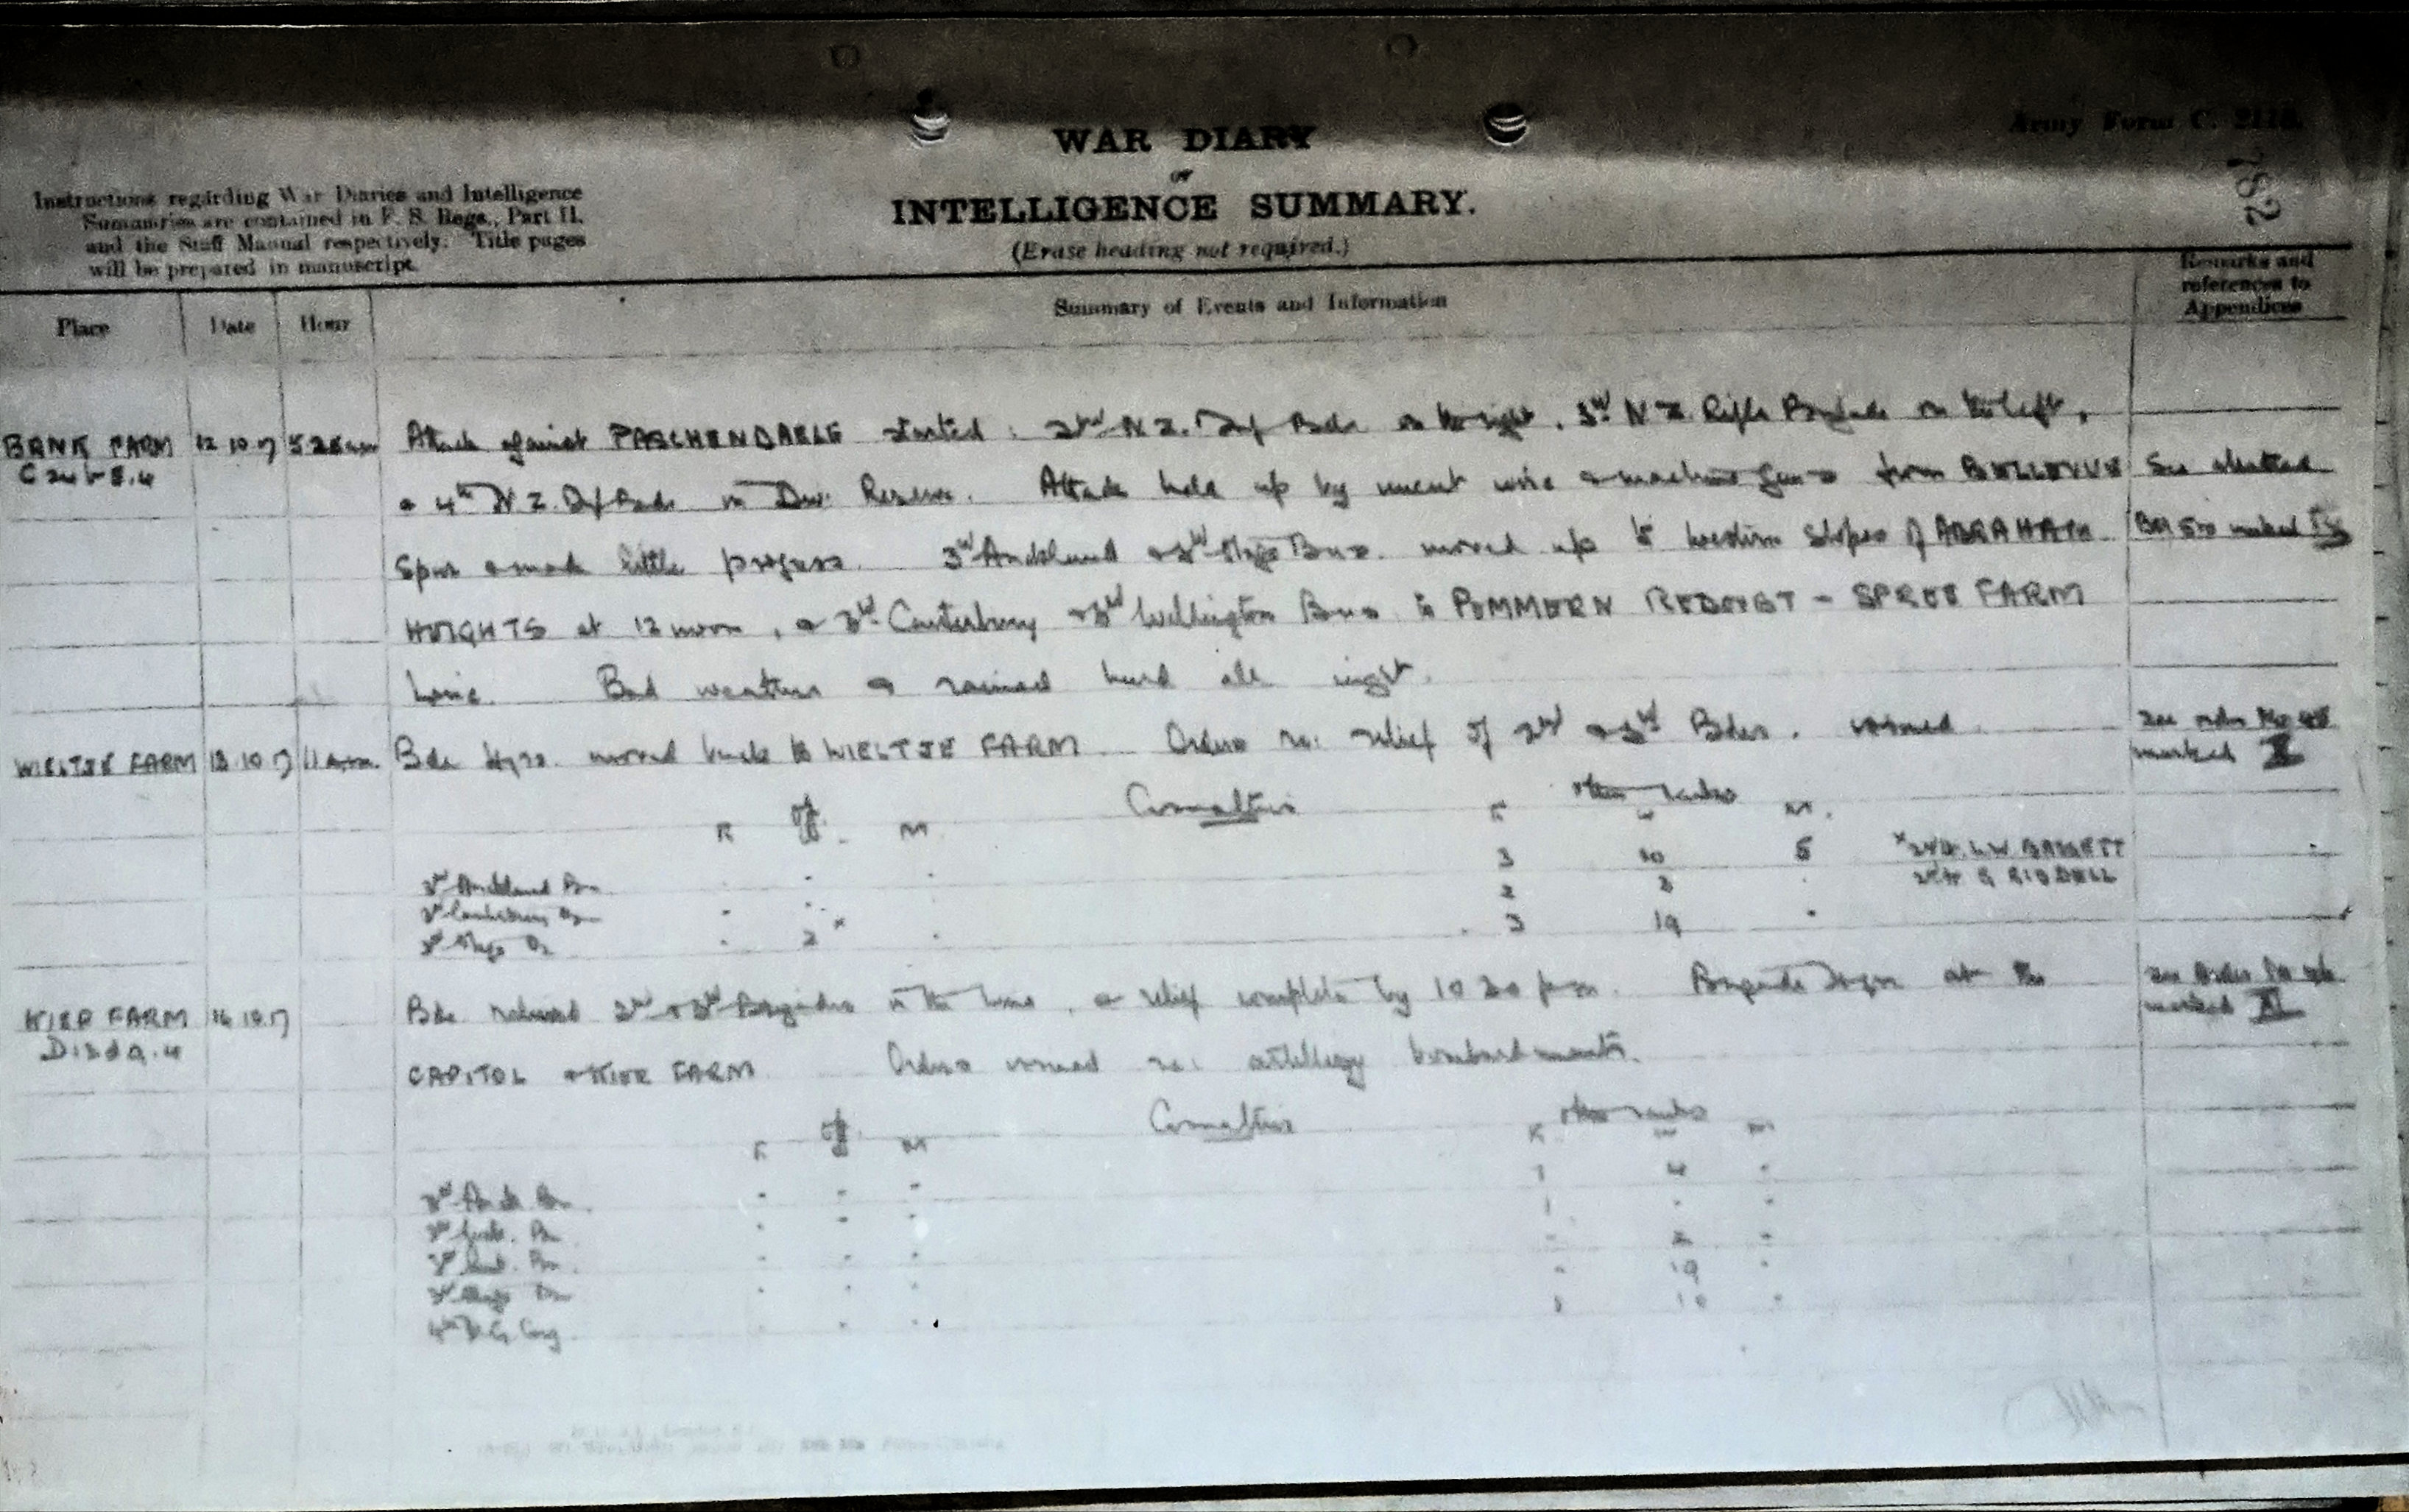 Army Form C. 2118.
782
WAR DIARY
or
INTELLIGENCE SUMMARY.
(Erase heading not required.)
Instructions regarding War Diaries and Intelligence
Summaries are contained in F. S. Regs., Part II.
and the Staff Manual respectively. Title pages
will be prepared in manuscript.
Place Date Hour Summary of Events and Information Remarks and references to Appendices
BANK FARM 12 10 17 5 25 am Attack against PASCHENDAELE started : 2nd N Z. Inf Bde on the right, 3rd N Z. Rifle Brigade on the left,
& 4th N Z. Inf Bde in Div. Reserve. Attack held up by uncut wire & machine guns from BELLEVUE See attached
Spur & made little progress. 3rd Auckland & 3rd Otago Bns. moved up to western slopes of ABRAHAM marked
HEIGHTS at 12 noon, & 3rd Canterbury & 3rd Wellington Bns to POMMERN REDOUBT - SPREE FARM
Line. Bad weather & rained hard all night.
WIELTJE FARM 13 10 17 11 a.m. Bde Hqrs. moved back to WIELTJE FARM. Orders re: relief of 2nd & 3rd Bdes. issued. See order No
marked X
Casualties
Off. other ranks
K M K W M.
3rd Auckland Bn 3 10 5
3rd Canterbury Bn 2 3
3rd Otago Bn 2 x 3 19
x 2nd Lt. L.W.
2nd Lt G RIDDELL
KIER FARM 14 10 17 Bde relieved 2nd & 3rd Brigades in the line, & relief complete by 10 30 pm. Brigade Hqrs at the See Order No
marked XI
CAPITOL & KIER FARM Orders issued re: artillery bombardments.
Casualties
Off other ranks
K M K W M
3rd Auck Bn. - - - 1 4 -
3rd - - - 1 - -
3rd Cant. Bn. - - - - 2 -
3rd Otago Bn - - - - 19 -
4th M.G. Coy. - - 10 -